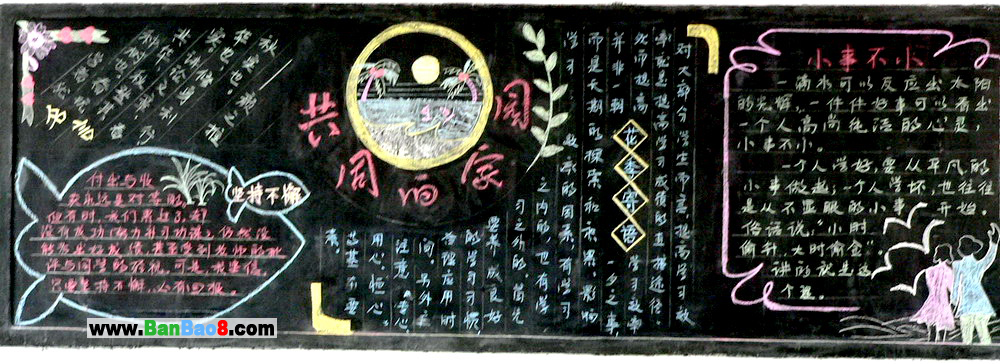 名言
付出与收
获永远是对等的，
但有时，我们累过了，却
没有成功
仍然没
能考出好成绩，甚至受到老师的批
评与同学的轻视，可是，我坚信，
只要坚持不懈，必有回报。
坚持不懈
共同的家园
花季寄语
对大部分学生而言，提高学习效
率就是提高学习成绩的直接途径
然而提高学习效率
并非一朝一夕之事
而是长期的探索和积累，影响
学习效率的因素，有学习
之内的，也有学
习之外的，首先
要养成良好
的学习习惯
应用时
间，另外
注意“专心
用心、恒心”
等基本要
素。
小事不小
一滴水可以反应出太阳
的光辉，一件件好事可以看出
一个人高尚纯洁的心灵，
小事不小。
一个人学好，要从平凡的
小事做起；一个人学坏，也往往
是从不显眼的小事开始。
俗话说，“小时
偷针，大时偷金”。
讲的就是这
个理。
www.BanBao8.com